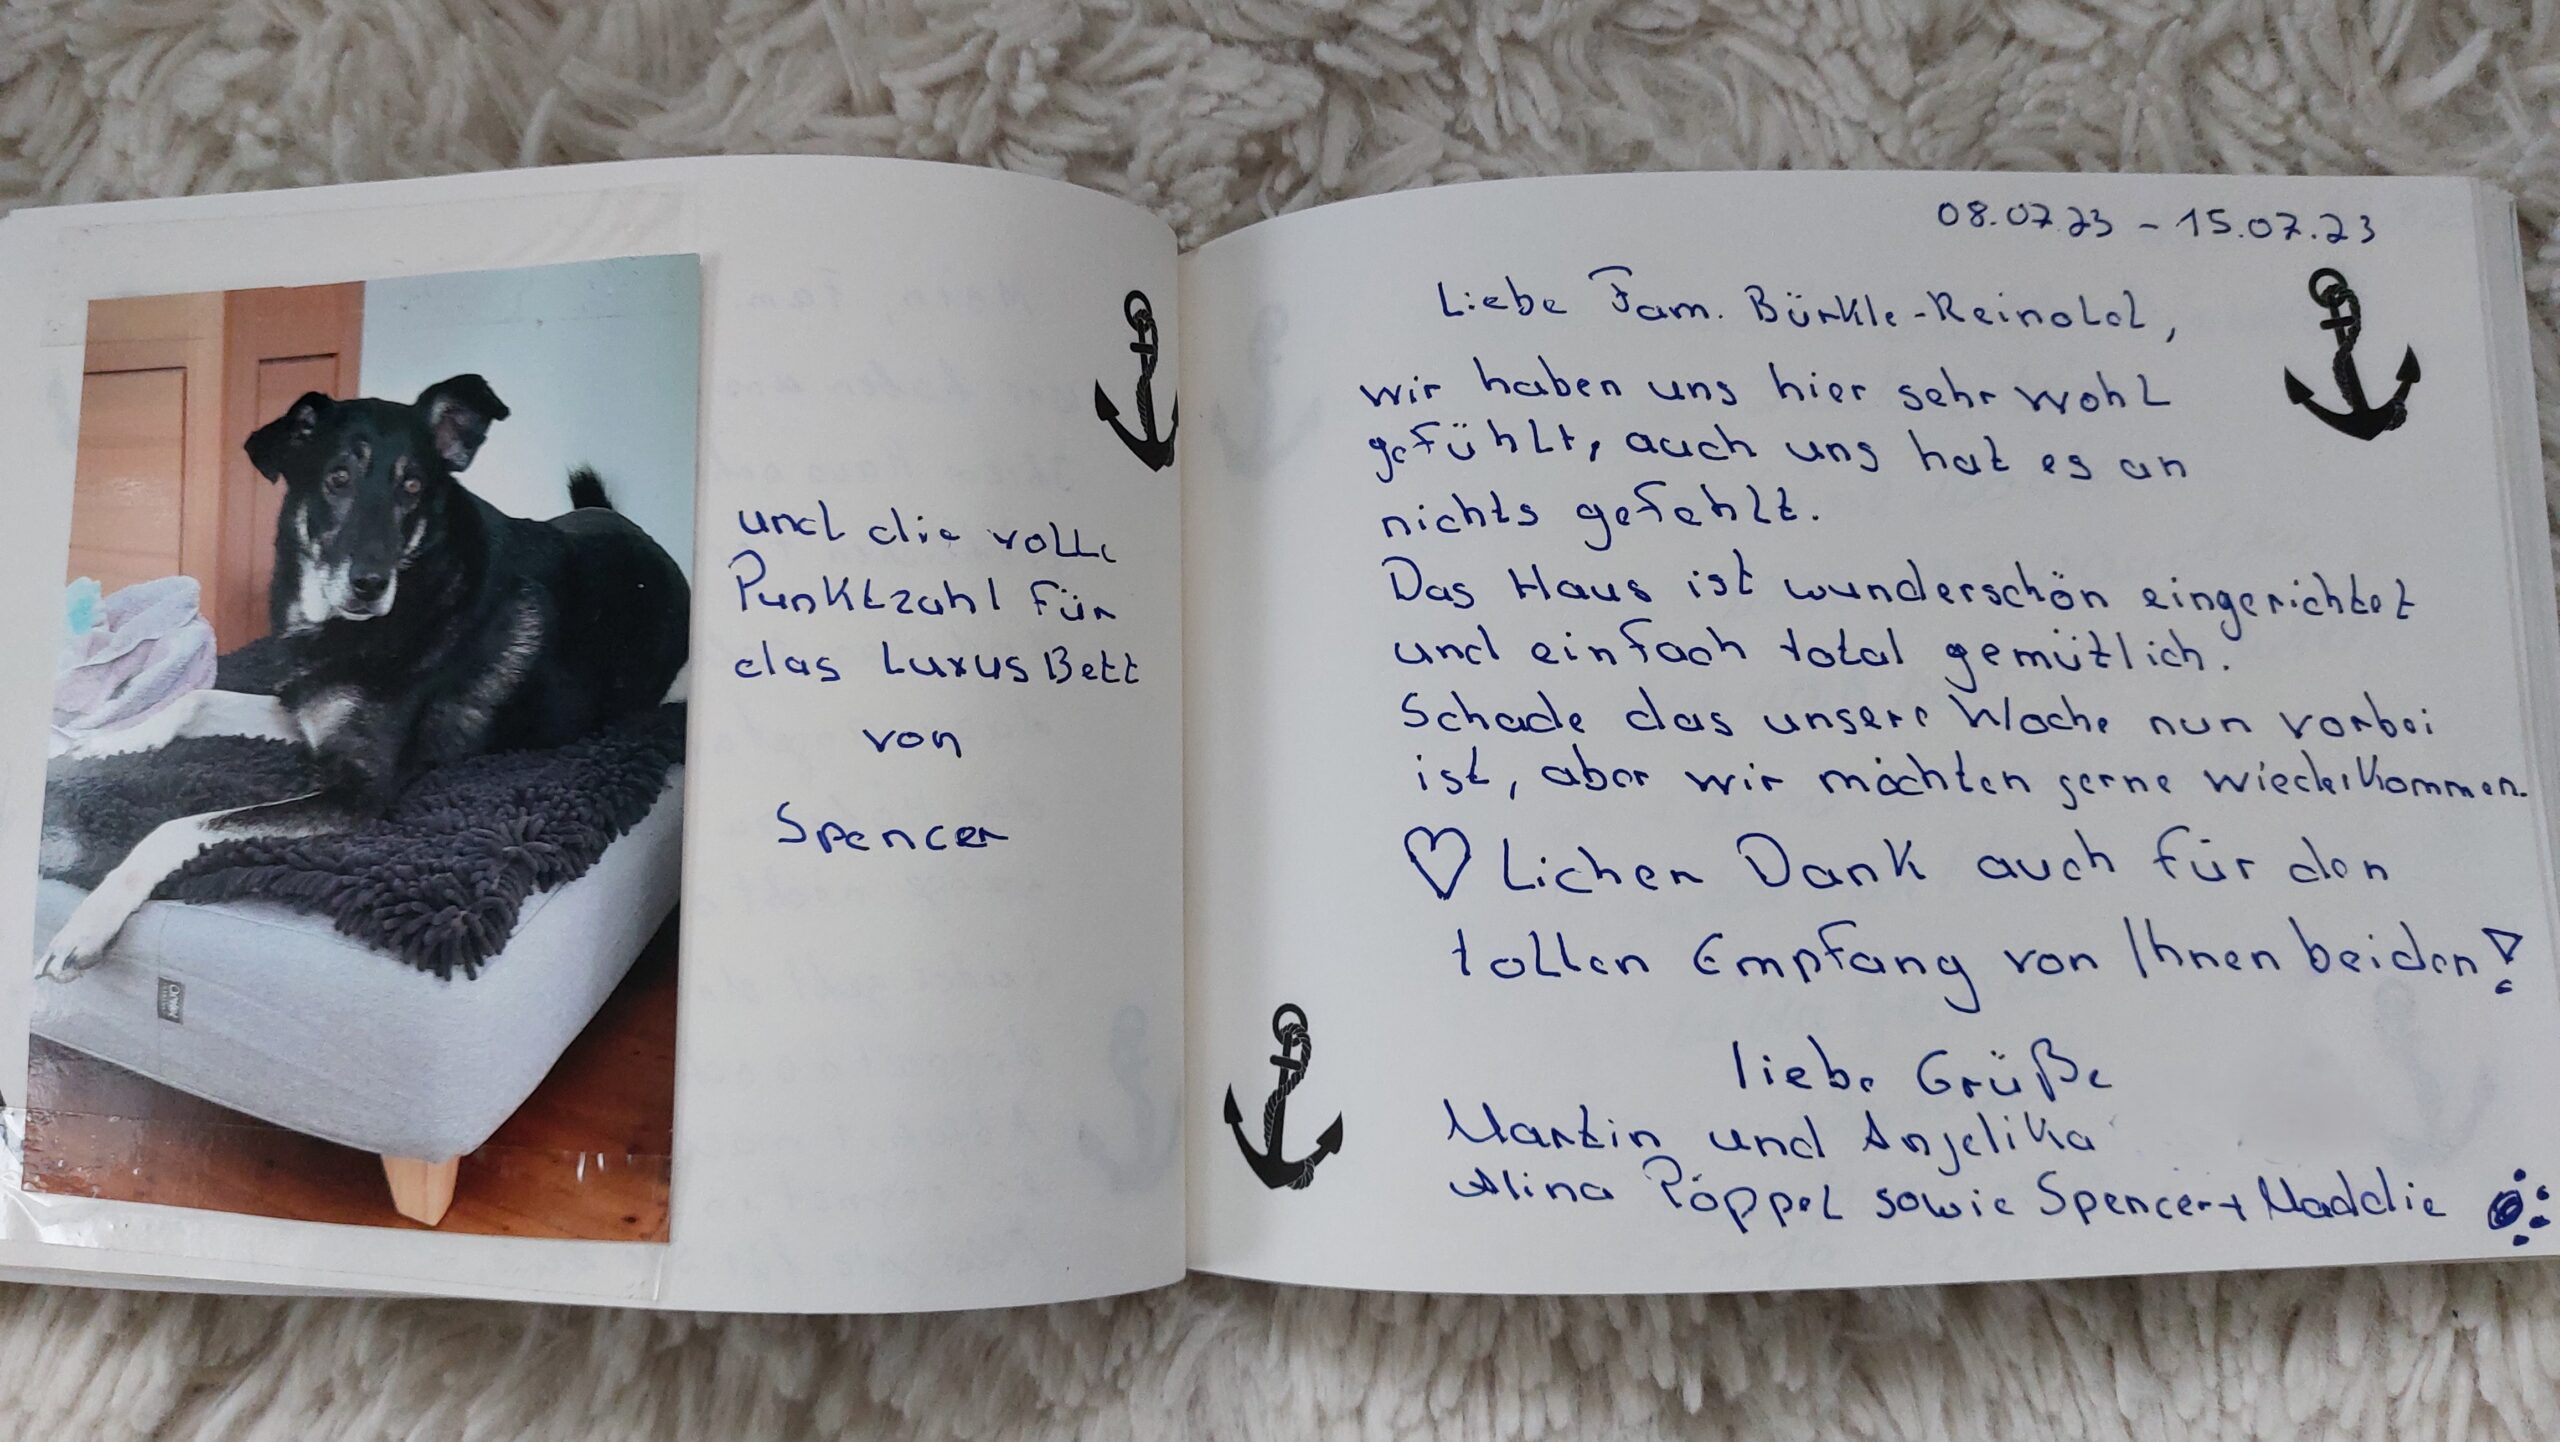 und die volle
Punktzahl für
das Luxus Bett
von
Spencer
08.07.23 - 15.07.23
Liebe Fam. Bürkle-Reinold,
wir haben uns hier sehr wohl
gefühlt, auch uns hat es an
nichts gefehlt.
Das Haus ist wunderschön eingerichtet
und einfach total gemütlich.
Schade das unsere Woche nun vorbei
ist, aber wir möchten gerne wiederkommen.
♡ Lichen Dank auch für den
tollen Empfang von Ihnen beiden!
liebe Grüße
Martin und Anjelika
Alina Pöppel sowie Spencer + Maddie